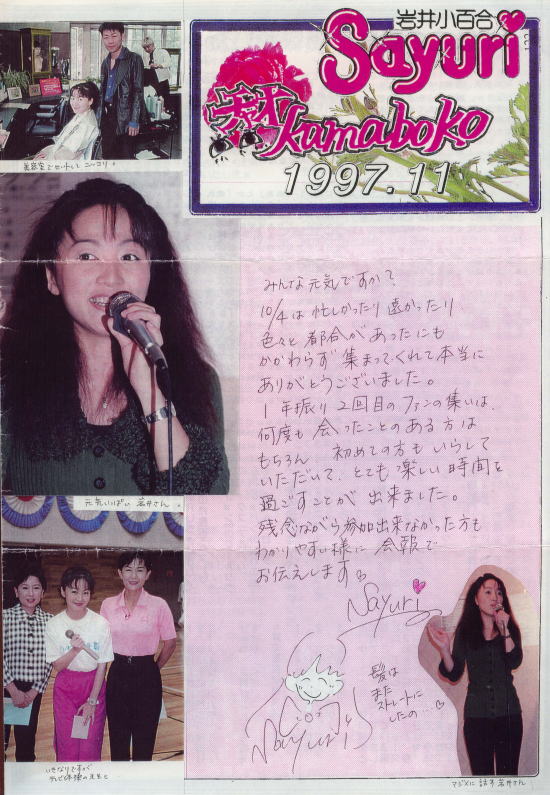 岩井小百合
Sayuri
Kamaboko
1997.11
美容室でセットして ニッコリ。
みんな元気ですか？
10/4は忙しかったり遠かったり
色々と都合があったにも
かかわらず集まってくれて本当に
ありがとうございました。
1年振り2回目のファンの集いは、
何度も会ったことのある方は
もちろん 初めての方もいらして
いただいて、とても楽しい時間を
過ごすことが出来ました。
残念ながら参加出来なかった方も
わかりやすい様に会報で
お伝えします
Sayuri
髪は
また
ストレートに
したの…
Sayuri
元気いっぱいの岩井さん。
いきなりですが
テレビ体操の先生と
マジメに話す岩井さん